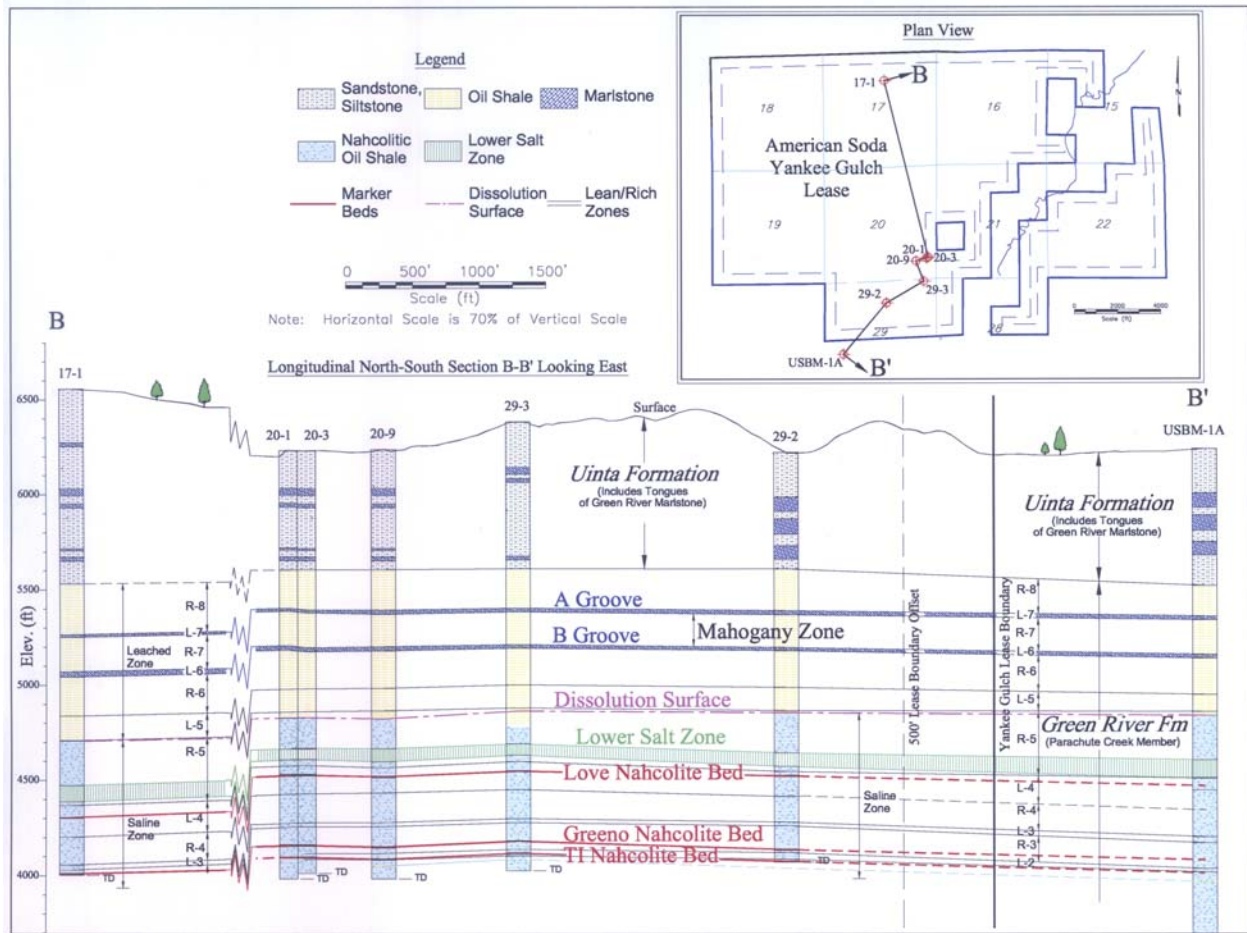 Legend
Sandstone,
Siltstone
Oil Shale
Marlstone
Nahcolitic
Oil Shale
Lower Salt
Zone
Marker
Beds
Dissolution
Surface
Lean/Rich
Zones
0 500' 1000' 1500'
Scale (ft)
Note: Horizontal Scale is 70% of Vertical Scale
Plan View
17-1
B
18
17
16
15
N
American Soda
Yankee Gulch
Lease
19
20
21
22
20-1
20-9
20-3
29-3
29-2
29
28
USBM-1A
B'
0 2000' 4000'
Scale (ft)
B
Longitudinal North-South Section B-B' Looking East
B'
17-1
20-1
20-3
20-9
29-3
Surface
29-2
USBM-1A
Elev. (ft)
6500
6000
5500
5000
4500
4000
Uinta Formation
(Includes Tongues
of Green River Marlstone)
Uinta Formation
(Includes Tongues
of Green River Marlstone)
R-8
L-7
R-7
L-6
R-6
L-5
R-5
L-4
R-4
L-3
Leached
Zone
Saline
Zone
TD
TD
TD
TD
TD
TD
A Groove
B Groove
Mahogany Zone
Dissolution Surface
Lower Salt Zone
Love Nahcolite Bed
Greeno Nahcolite Bed
TI Nahcolite Bed
Saline
Zone
500' Lease Boundary Offset
Yankee Gulch Lease Boundary
R-8
L-7
R-7
L-6
R-6
L-5
R-5
L-4
R-4
L-3
R-3
L-2
Green River Fm
(Parachute Creek Member)